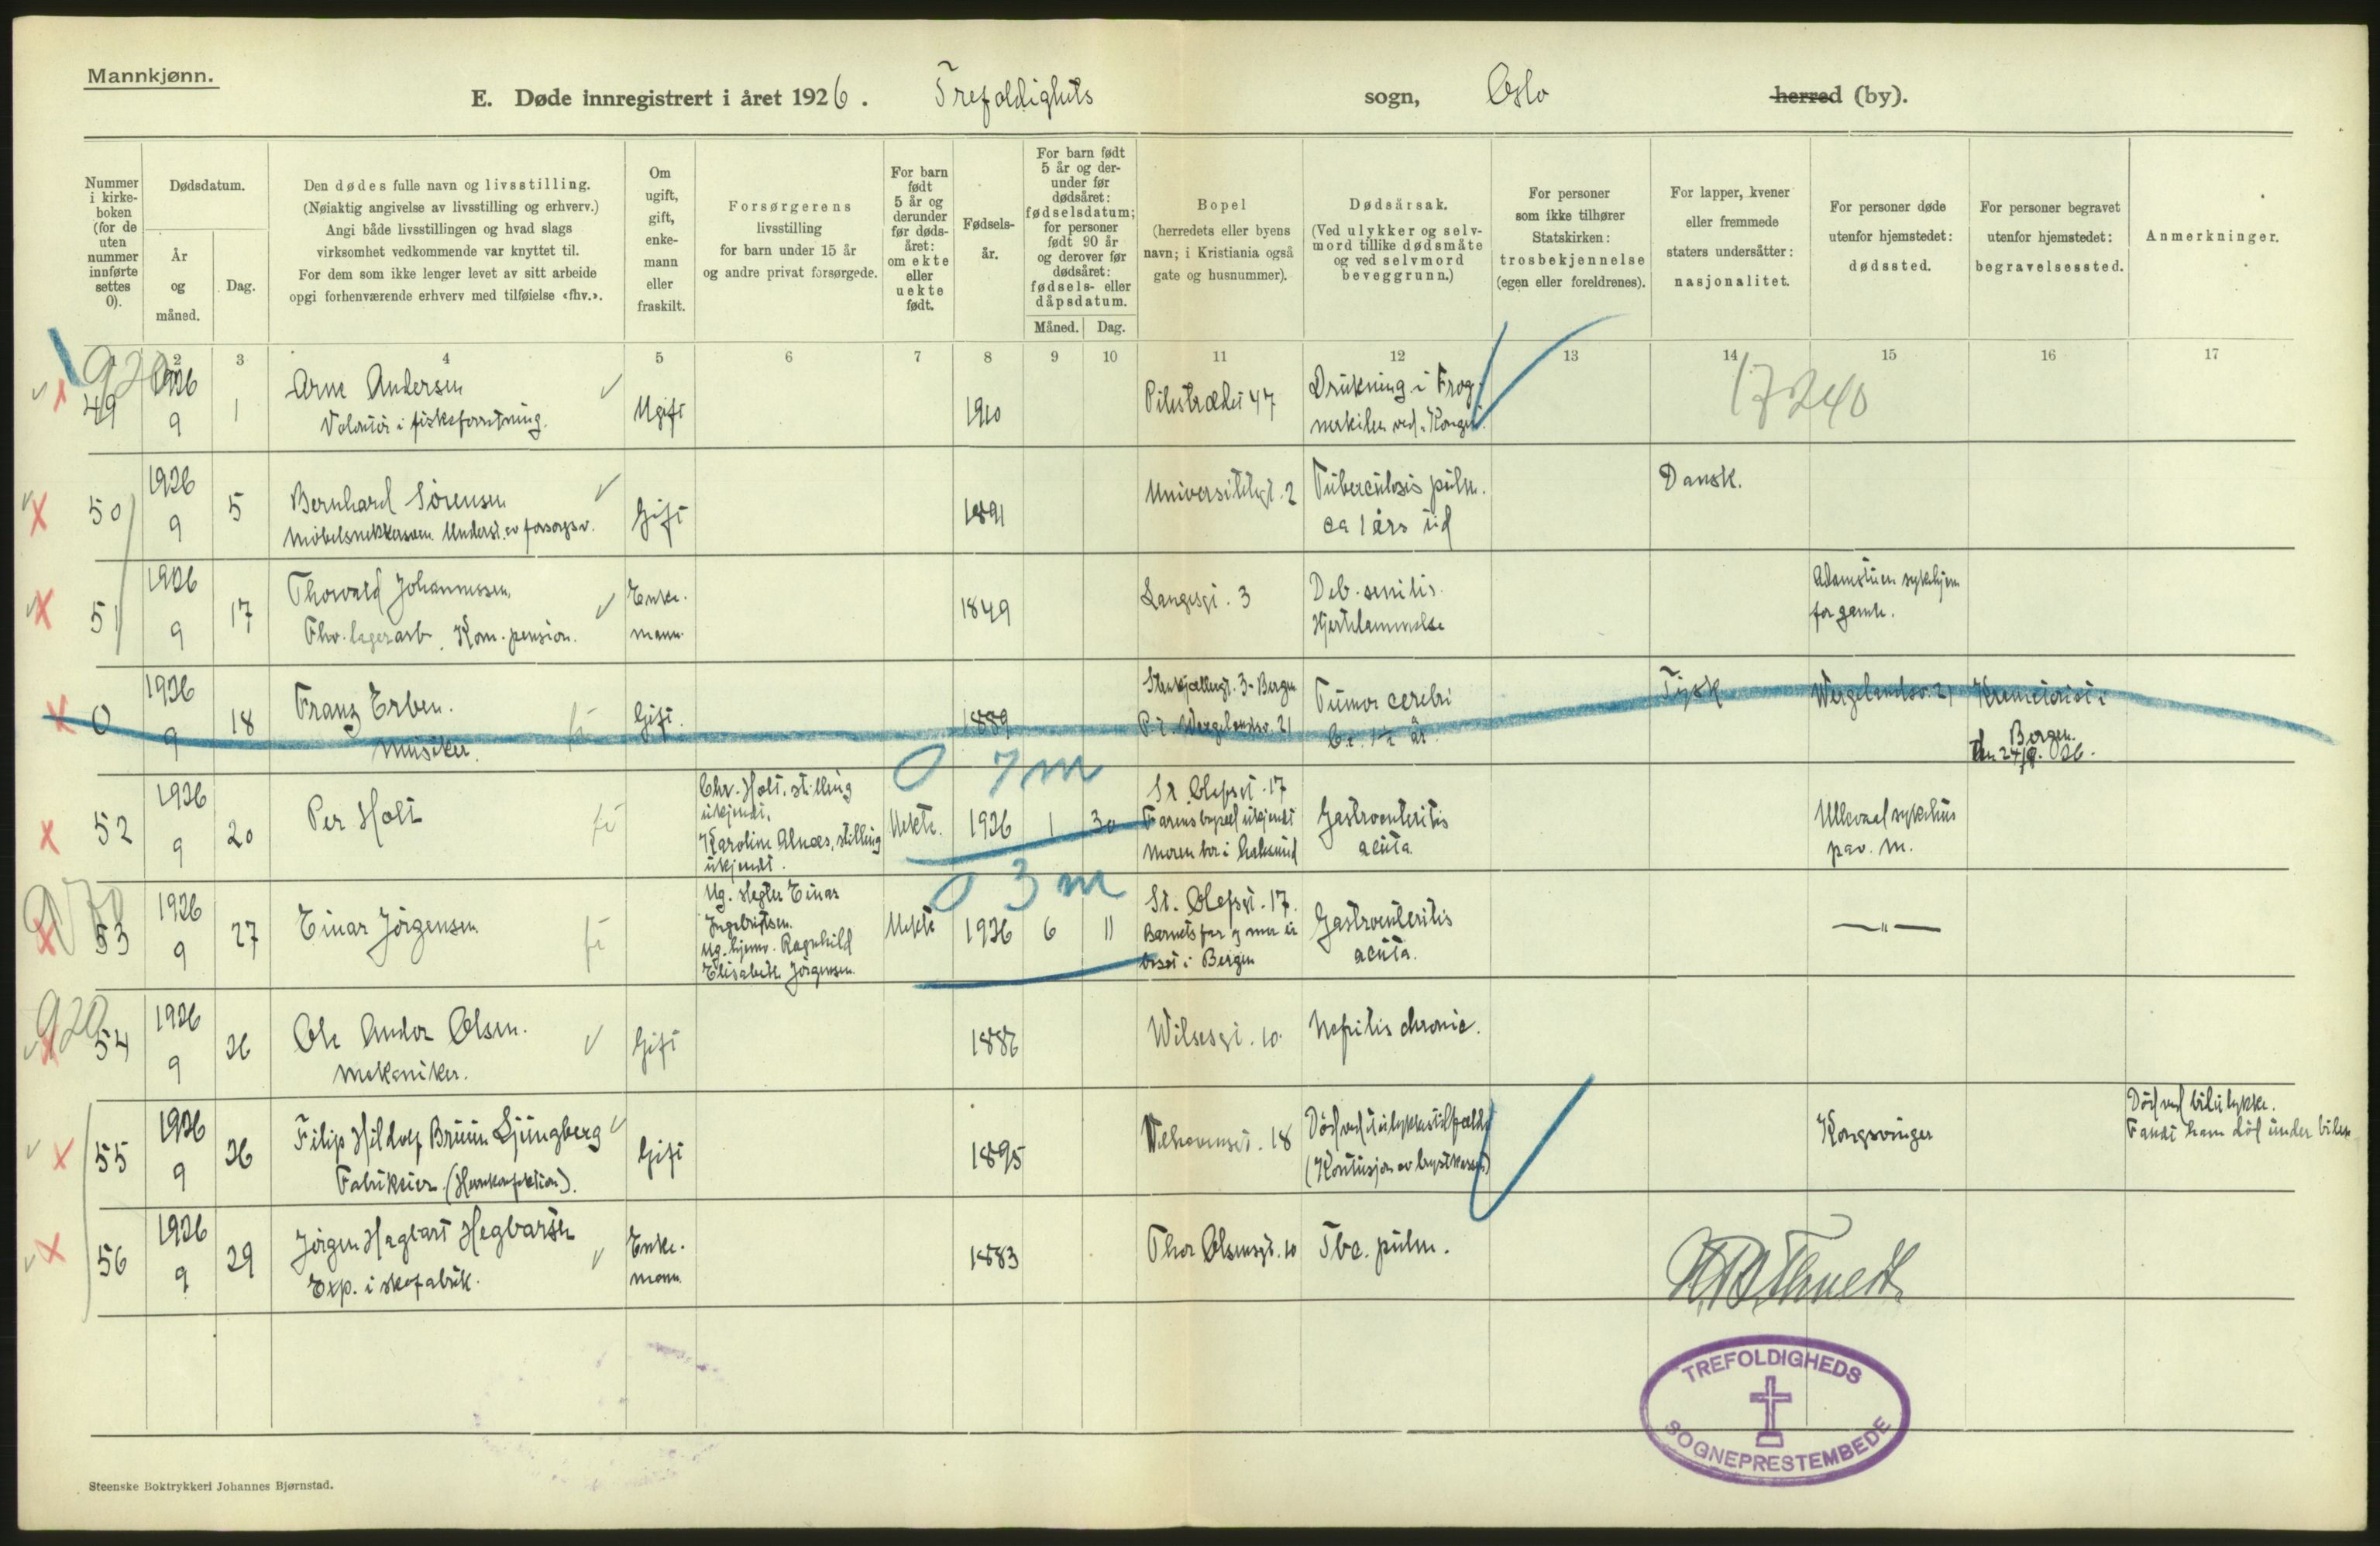 Mannkjønn.
E. Døde innregistrert i året 1926. Trefoldighets sogn, Oslo herred (by).
Nummer i kirke-boken (for de uten nummer innførte settes 0).
Dødsdatum.
År og måned.
Dag.
Den dødes fulle navn og livsstilling.
(Nøiaktig angivelse av livsstilling og erhverv.)
Angi både livsstillingen og hvad slags
virksomhet vedkommende var knyttet til.
For dem som ikke lenger levet av sitt arbeide
opgi forhenværende erhverv med tilføielse «fhv.».
Om ugift, gift, enke-mann eller fraskilt.
Forsørgerens
livsstilling
for barn under 15 år
og andre privat forsørgede.
For barn født 5 år og derunder før døds-året: om ekte eller uekte født.
Fødsels-år.
For barn født 5 år og der-under før dødsåret: fødselsdatum; for personer født 90 år og derover før dødsåret: fødsels- eller dåpsdatum.
Måned. Dag.
Bopel
(herredets eller byens
navn; i Kristiania også
gate og husnummer).
Dødsårsak.
(Ved ulykker og selv-
mord tillike dødsmåte
og ved selvmord
beveggrunn.)
For personer
som ikke tilhører
Statskirken:
trosbekjennelse
(egen eller foreldrenes).
For lapper, kvener
eller fremmede
staters undersåtter:
nasjonalitet.
For personer døde
utenfor hjemstedet:
dødssted.
For personer begravet
utenfor hjemstedet:
begravelsessted.
Anmerkninger.
1 2 3 4 5 6 7 8 9 10 11 12 13 14 15 16 17
920
49 1926 9 1 Arne Andersen
Volontör i fiskeforretning.
Ugift 1910 Pilestrædet 47
Drukning i Frog-
nerkilen ved "Kongen".
17240
50 1926 9 5 Bernhard Sörensen
Möbelsnekkersven. Underst. av forsorgsv.
Gift 1891 Universitetsgt. 2
Tuberculosis pulm.
ca 1 års tid
Dansk.
51 1926 9 17 Thorvald Johannessen.
Fhv. lagerarb. Kom. pension.
Enke-
mann.
1849 Langesgt. 3
Deb. senilis.
Hjertelammelse
Adamstuen sykehjem
for gamle.
0 1926 9 18 Franz Erben.
Musiker.
Gift. 1889
3 - Bergen
P. t. Wergelandsv. 21
Tumor cerebri
Ca. 1½ år.
Tysk
Wergelandsv. 21
Kremeterist i
Bergen.
den 24/9. 26.
0 7 m
52 1926 9 20 Per Holt
Chr. Holt, stilling
ukjendt.
Karoline Alnæs, stilling
ukjendt.
Uekte. 1926 1 30
St. Olefsgt. 17
Farens bopæl ukjendt
Moren bor i
Gastroenteritis
acuta
Ullevaal sykehus
pav. m.
0 3 m
970
53 1926 9 27 Einar Jörgensen
Ug. Einar
Ingebrigtsen.
Ug. hjemv. Ragnhild
Elisabeth Jörgensen.
Uekte 1926 6 11
St. Olefsgt. 17.
Barnets far og mor er
bosat i Bergen
Gastroenteritis
acuta.
— " —
920
54 1926 9 26 Ole Andor Olsen.
Mekaniker.
Gift 1886 Wilsesgt. 10. Nefritis chronic.
55 1926 9 26 Filip Hildolf Bruun Ljungberg
Fabrikeier (Herrekonfektion).
Gift 1895 18
Död ved et ulykkestilfælde
(Kontusjon av brystkassen)
Kongsvinger
Död ved bilulykke.
Fandt ham död under bilen
56 1926 9 29 Jörgen Hagbart Hegbarth
Exp. i skofabrik.
Enke-
mann.
1883 Thor Olsensgt. 10 Tbc. pulm.
TREFOLDIGHEDS
SOGNEPRESTEMBEDE
Steenske Boktrykkeri Johannes Bjørnstad.